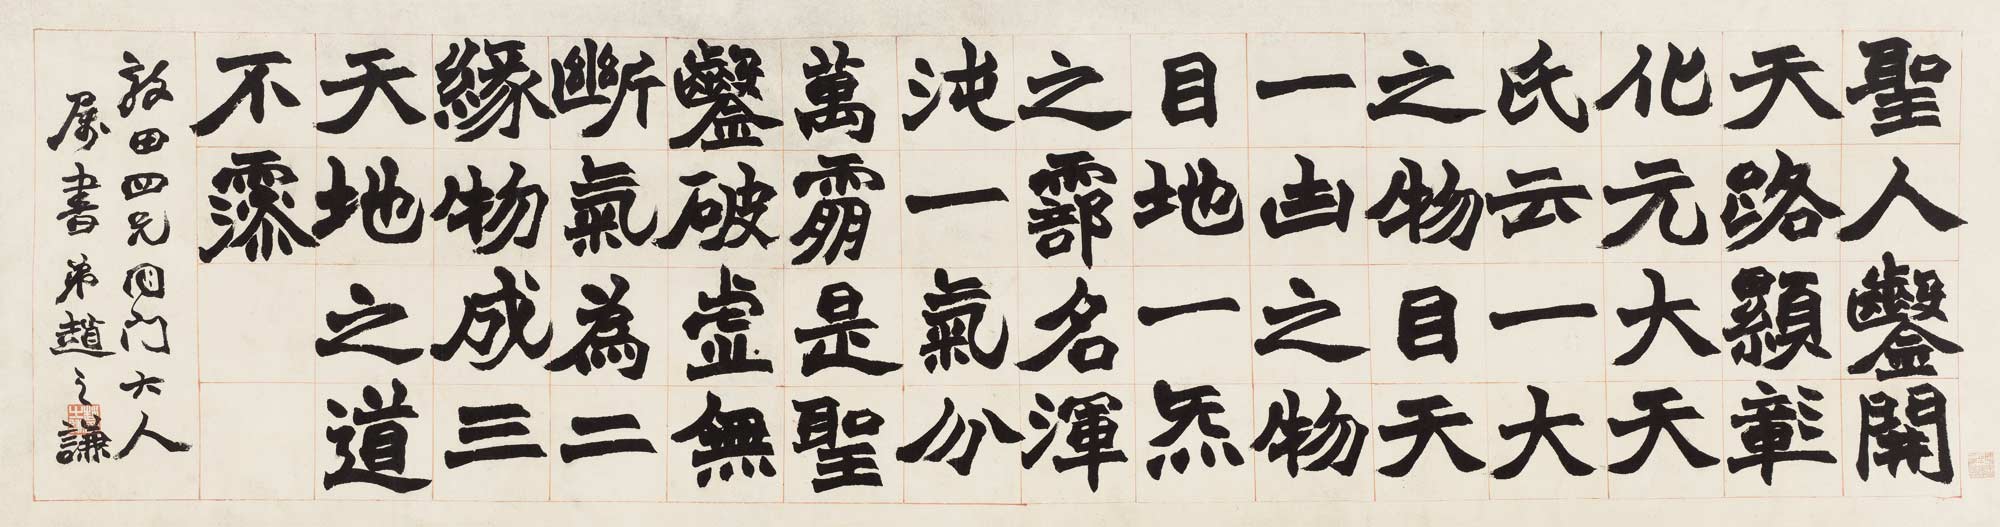 聖人鑿開
天路顯彰
化元大天
氏云一大
之物目天
一凷之物
目地一炁
之名渾
沌一氣分
萬是聖
鑿破虛無
斷氣為二
緣物成三
天地之道
不
田四兄同門大人
屬書弟趙之謙